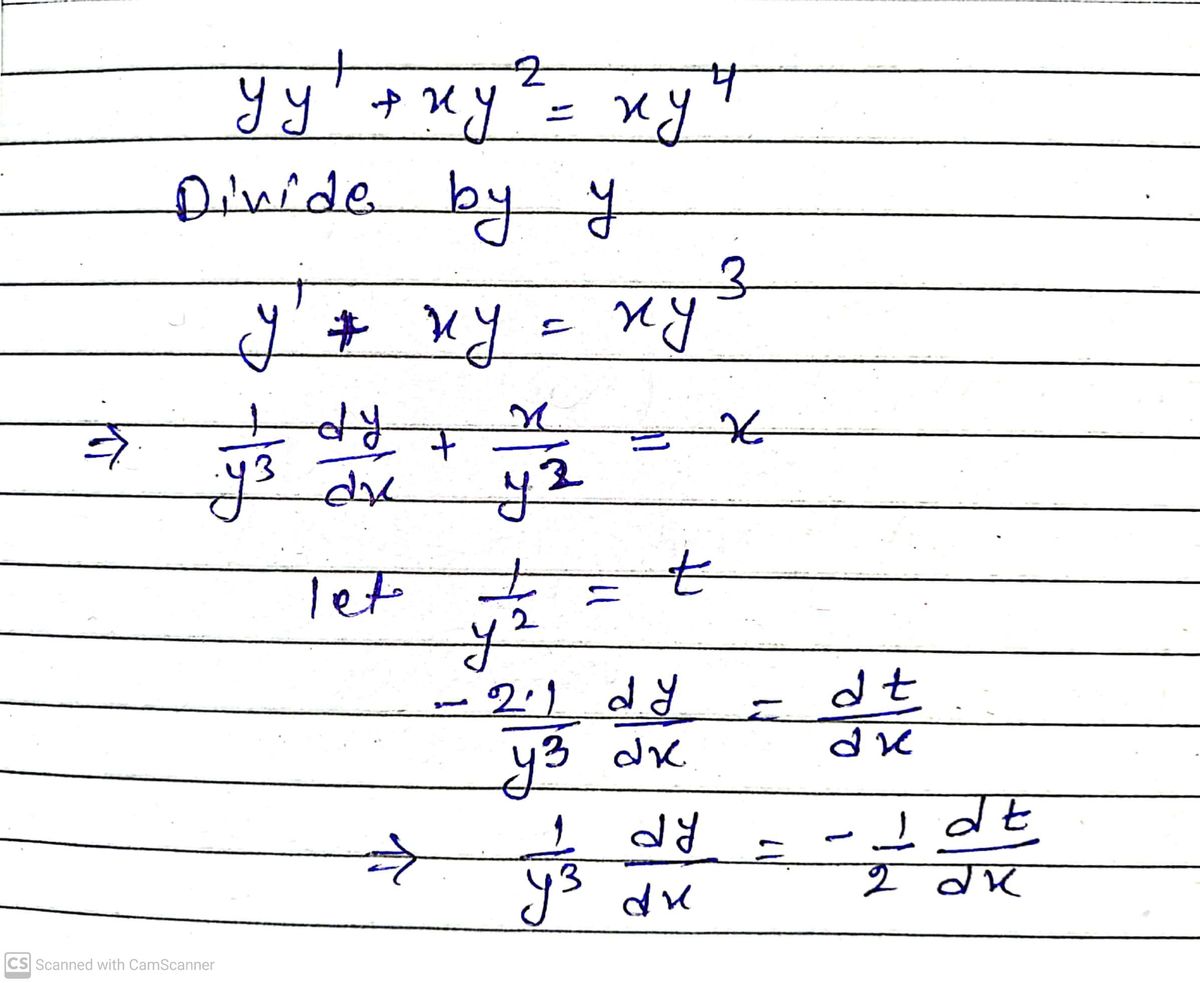 yy' + xy² = xy⁴
Divide by y
y' + xy = xy³
⇒ 1/y³ dy/dx + x/y² = x
let 1/y² = t
-2·1/y³ dy/dx = dt/dx
⇒ 1/y³ dy/dx = -1/2 dt/dx
CS Scanned with CamScanner